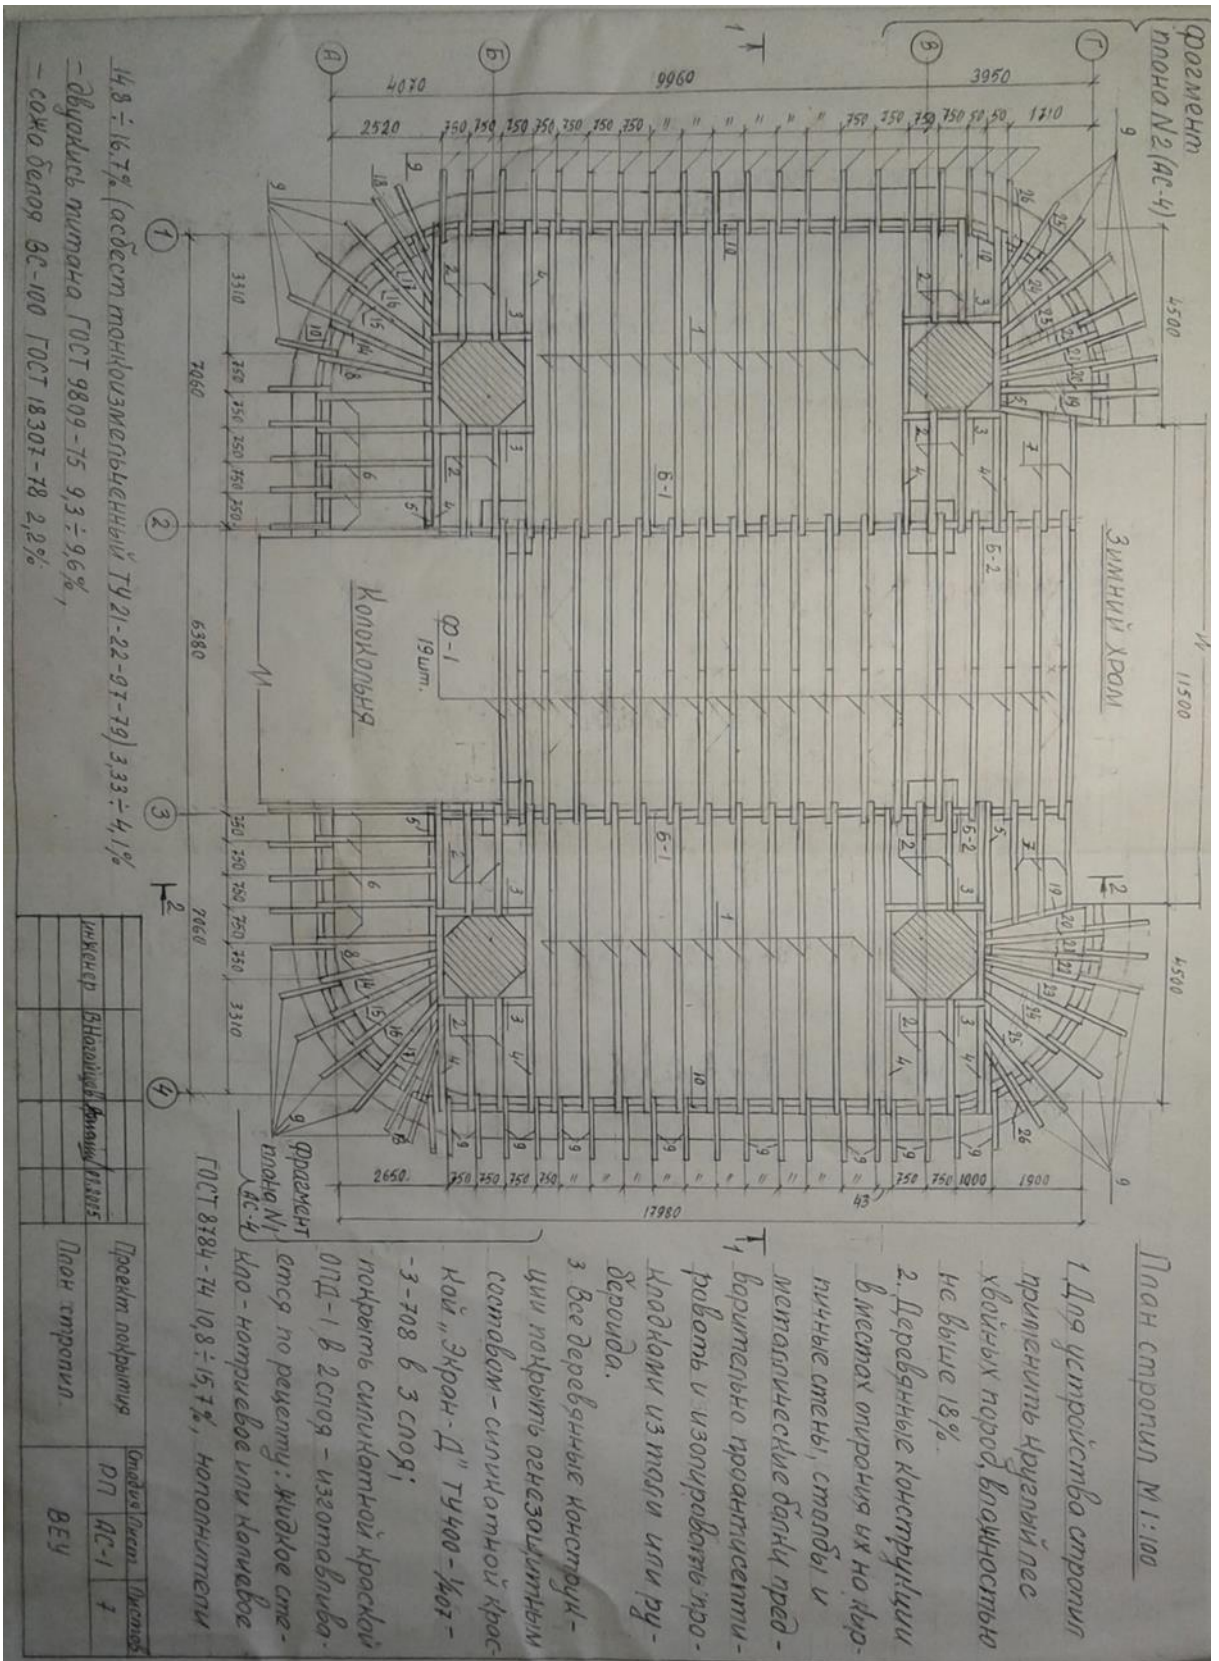 План стропил М 1:100
1. Для устройства стропил
применить круглый лес
хвойных пород, влажностью
не выше 18%.
2. Деревянные конструкции
в местах опирания их на кир-
пичные стены, столбы и
металлические балки пред-
варительно проантисепти-
ровать и изолировать про-
кладками из толи или ру-
бероида.
3 Все деревянные конструк-
ции покрыть огнезащитным
составом-силикатной крас
кой „Экран-Д" ТУ400-1/407-
-3-708 в 3 слоя;
покрыть силикатной краской
ОПД-1 в 2 слоя - изготавлива-
ется по рецепту: жидкое сте-
кло-натриевое или калиевое
ГОСТ 8784-74 10,8÷15,7%, наполнители
14,8÷16,7% (асбест тонкоизмельченный ТУ21-22-97-79) 3,33÷4,1%
- двуокись титана ГОСТ 9809-75 9,3÷9,6%,
- сажа белая ВС-100 ГОСТ 18307-78 2,2%
фрагмент
плана N2 (АС-4)
фрагмент
плана N1
(АС-4)
Зимний храм
Колокольня
Ф-1
19 шт.
Б-1
Б-1
Б-2
Б-2
А
Б
В
Г
1
2
3
4
4070
9960
3950
2520
1710
4500
11500
4500
3310
7060
6380
7060
3310
2650
17980
1000
1900
43
инженер
Проект покрытия
План стропил.
Стадия
Лист
Листов
РП
АС-1
7
ВЕЧ